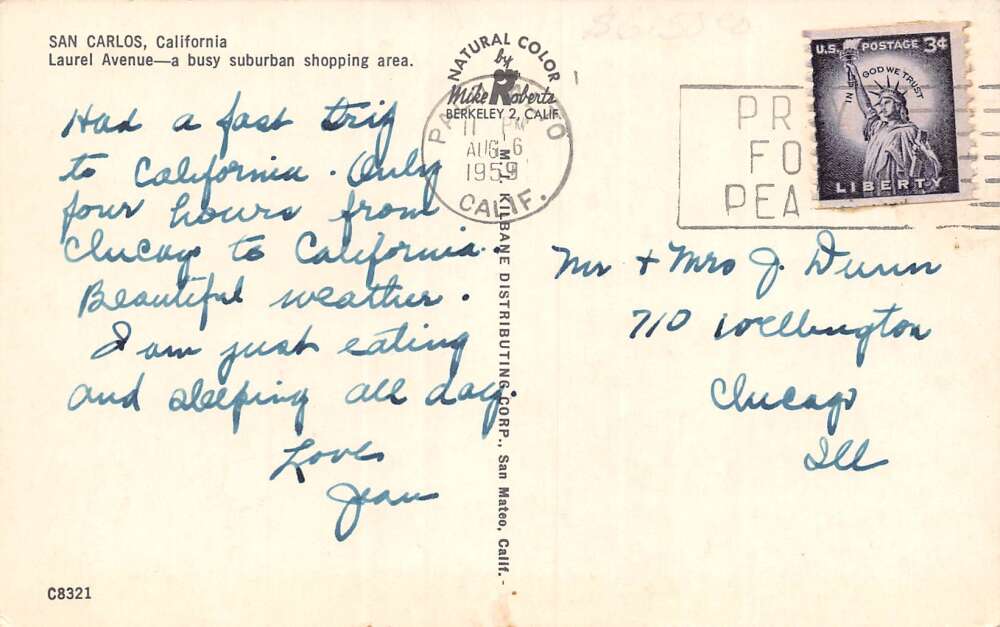 SAN CARLOS, California
Laurel Avenue—a busy suburban shopping area.
Had a fast trip
to California. Only
four hours from
Chicago to California.
Beautiful weather.
I am just eating
and sleeping all day.
Love
Jean
C8321
NATURAL COLOR
by
Mike Roberts
BERKELEY 2, CALIF.
PA O
11 PM
AUG 6
1959
CALIF.
M. J. KILBANE DISTRIBUTING CORP., San Mateo, Calif.
PR
FO
PEA
U.S. POSTAGE 3¢
IN GOD WE TRUST
LIBERTY
Mr + Mrs J. Dunn
710 Wellington
Chicago
Ill